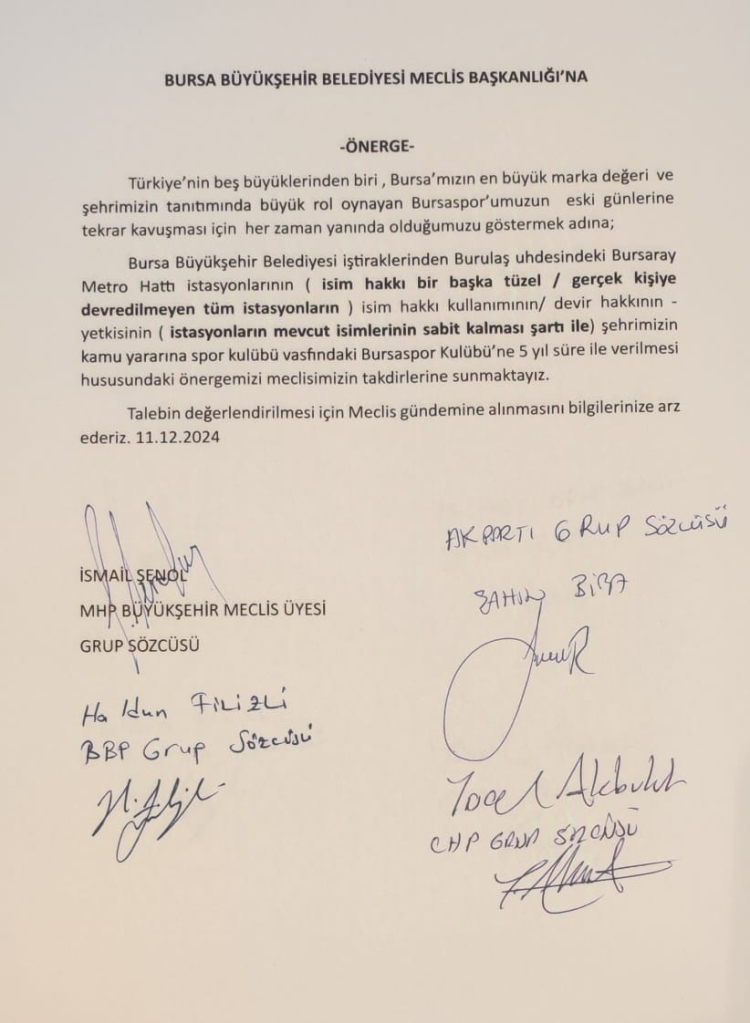 BURSA BÜYÜKŞEHİR BELEDİYESİ MECLİS BAŞKANLIĞI'NA
-ÖNERGE-
Türkiye'nin beş büyüklerinden biri , Bursa'mızın en büyük marka değeri ve
şehrimizin tanıtımında büyük rol oynayan Bursaspor'umuzun eski günlerine
tekrar kavuşması için her zaman yanında olduğumuzu göstermek adına;
Bursa Büyükşehir Belediyesi iştiraklerinden Burulaş uhdesindeki Bursaray
Metro Hattı istasyonlarının ( isim hakkı bir başka tüzel / gerçek kişiye
devredilmeyen tüm istasyonların ) isim hakkı kullanımının/ devir hakkının -
yetkisinin ( istasyonların mevcut isimlerinin sabit kalması şartı ile) şehrimizin
kamu yararına spor kulübü vasfındaki Bursaspor Kulübü'ne 5 yıl süre ile verilmesi
hususundaki önergemizi meclisimizin takdirlerine sunmaktayız.
Talebin değerlendirilmesi için Meclis gündemine alınmasını bilgilerinize arz
ederiz. 11.12.2024
AKPARTİ GRUP SÖZCÜSÜ
ŞAHİN BİBA
İSMAİL ŞENOL
MHP BÜYÜKŞEHİR MECLİS ÜYESİ
GRUP SÖZCÜSÜ
Haldun FİLİZLİ
BBP Grup Sözcüsü
Akbulut
CHP GRUP SÖZCÜSÜ